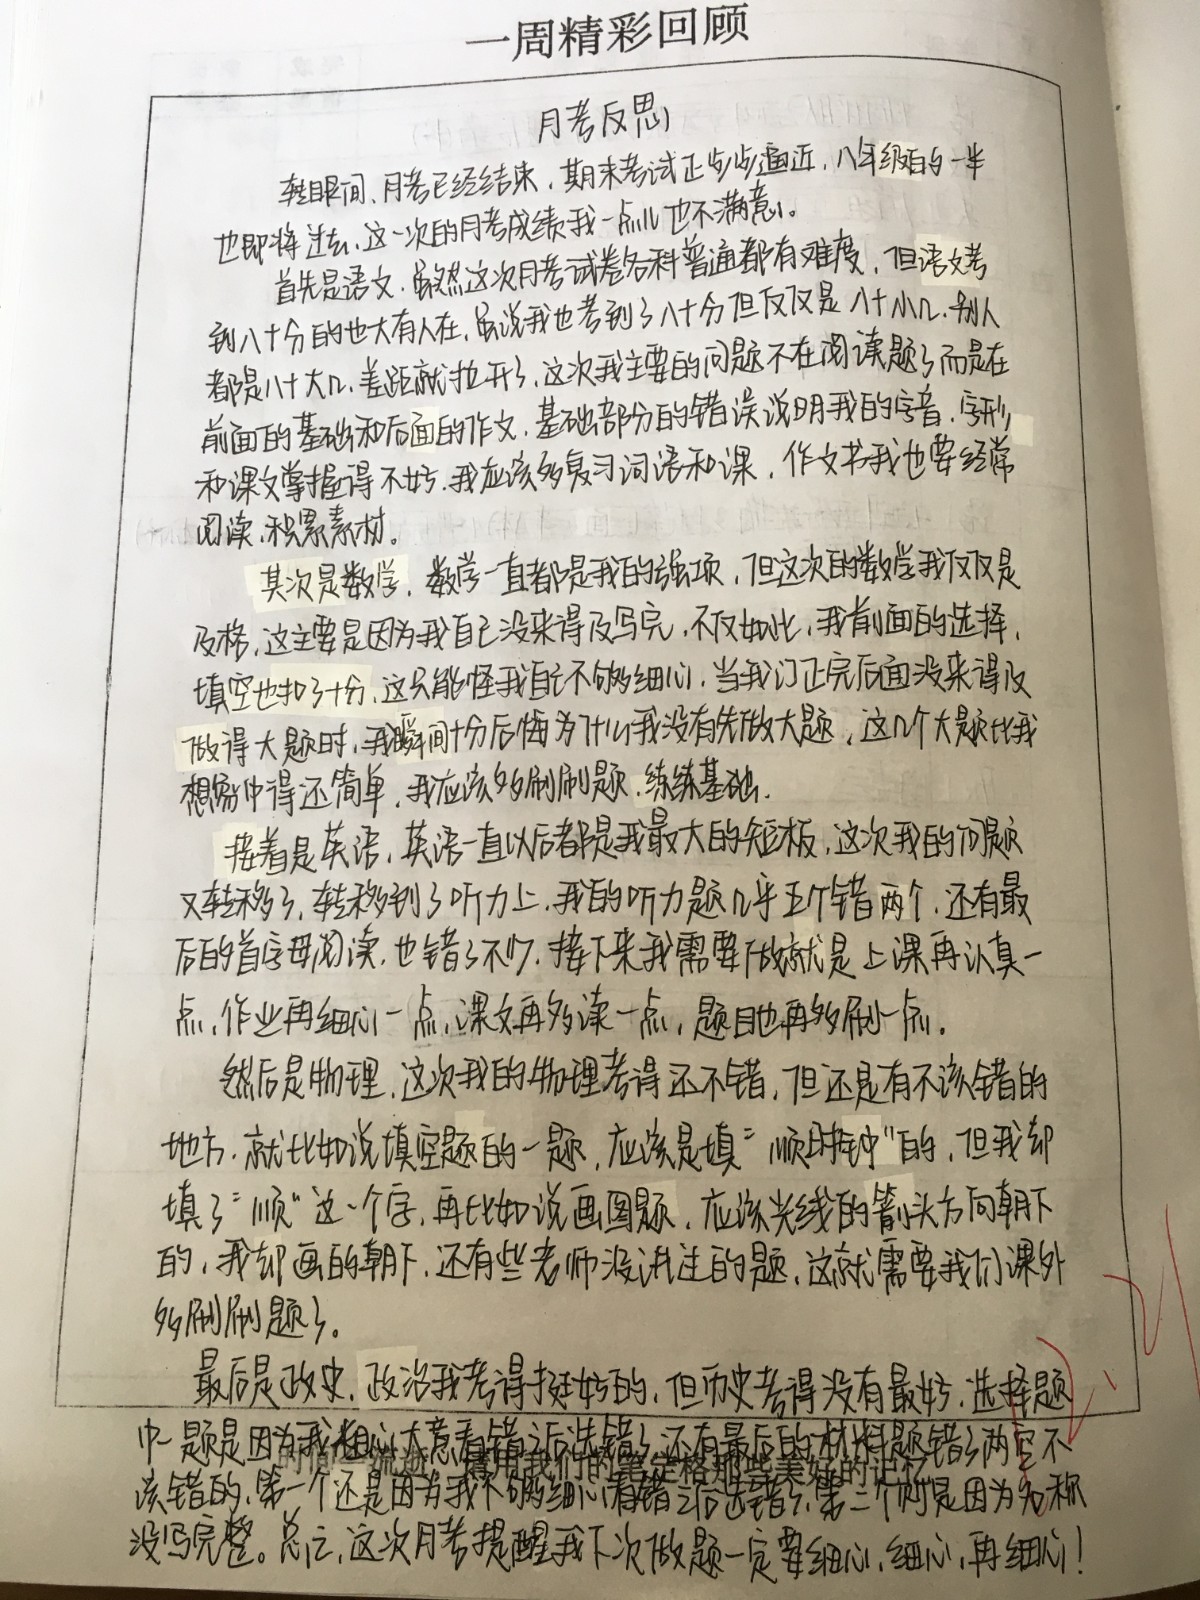 一周精彩回顾
月考反思
转眼间，月考已经结束，期末考试正步步逼近，八年级的一半
也即将过去，这一次的月考成绩我一点儿也不满意。
首先是语文，虽然这次月考试卷各科普遍都有难度，但语文考
到八十分的也大有人在，虽说我也考到了八十分但仅仅是八十小几，别人
都是八十大几，差距就拉开了，这次我主要的问题不在阅读题了而是在
前面的基础和后面的作文，基础部份的错误说明我的字音，字形
和课文掌握得不好，我应该多复习词语和课，作文等我也要经常
阅读，积累素材。
其次是数学，数学一直都是我的强项，但这次的数学我仅仅是
及格，这主要是因为我自己没来得及写完，不仅如此，我前面的选择，
填空也扣了十分，这只能怪我自己不够细心，当我订正完后面没来得及
做得大题时，我瞬间十分后悔为什么我没有先做大题，这几个大题比我
想象中得还简单，我应该多刷刷题，练练基础.
接着是英语，英语一直以后都是我最大的短板，这次我的问题
又转移了，转移到了听力上，我的听力题15个对了错两个，还有最
后的首字母阅读，也错了不少，接下来我需要做的就是上课再认真一
点，作业再细心一点，课文再多读一点，题目也再多刷一点。
然后是物理，这次我的物理考得还不错，但还是有不该错的
地方，就比如说填空题的一题，应该是填："顺时针"的，但我却
填了："顺"这一个字，再比如说画图题，应该光线的箭头方向朝下
的，我却画的朝下，还有些老师没讲过的题，这就需要我们课外
多刷刷题了。
最后是政史，政治我考得挺好的，但历史考得没有最好，选择题
该错的，第一个还是因为我不够细心，
没写完整。总之，这次月考提醒我下次做题一定要细心，细心，再细心！